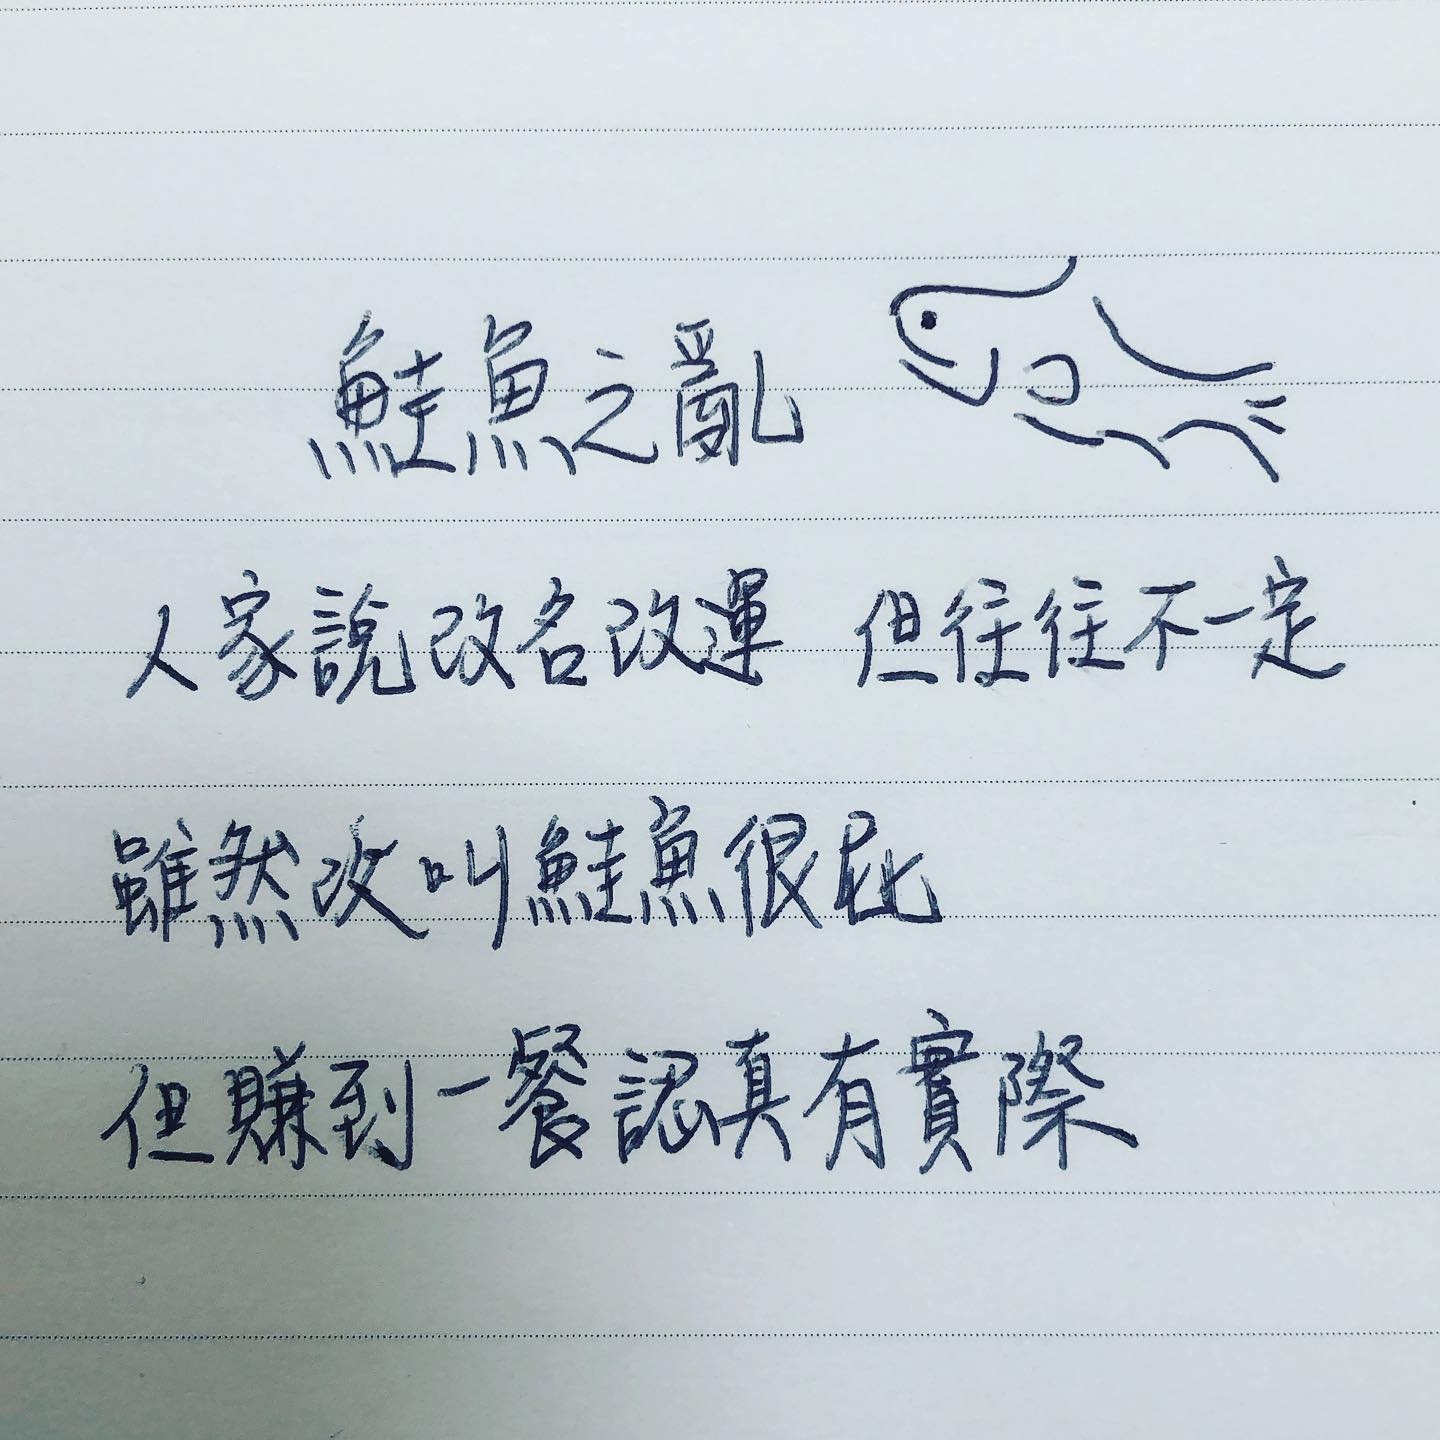 鮭魚之亂
人家說改名改運 但往往不一定
雖然改叫鮭魚很屁
但賺到一餐認真有實際